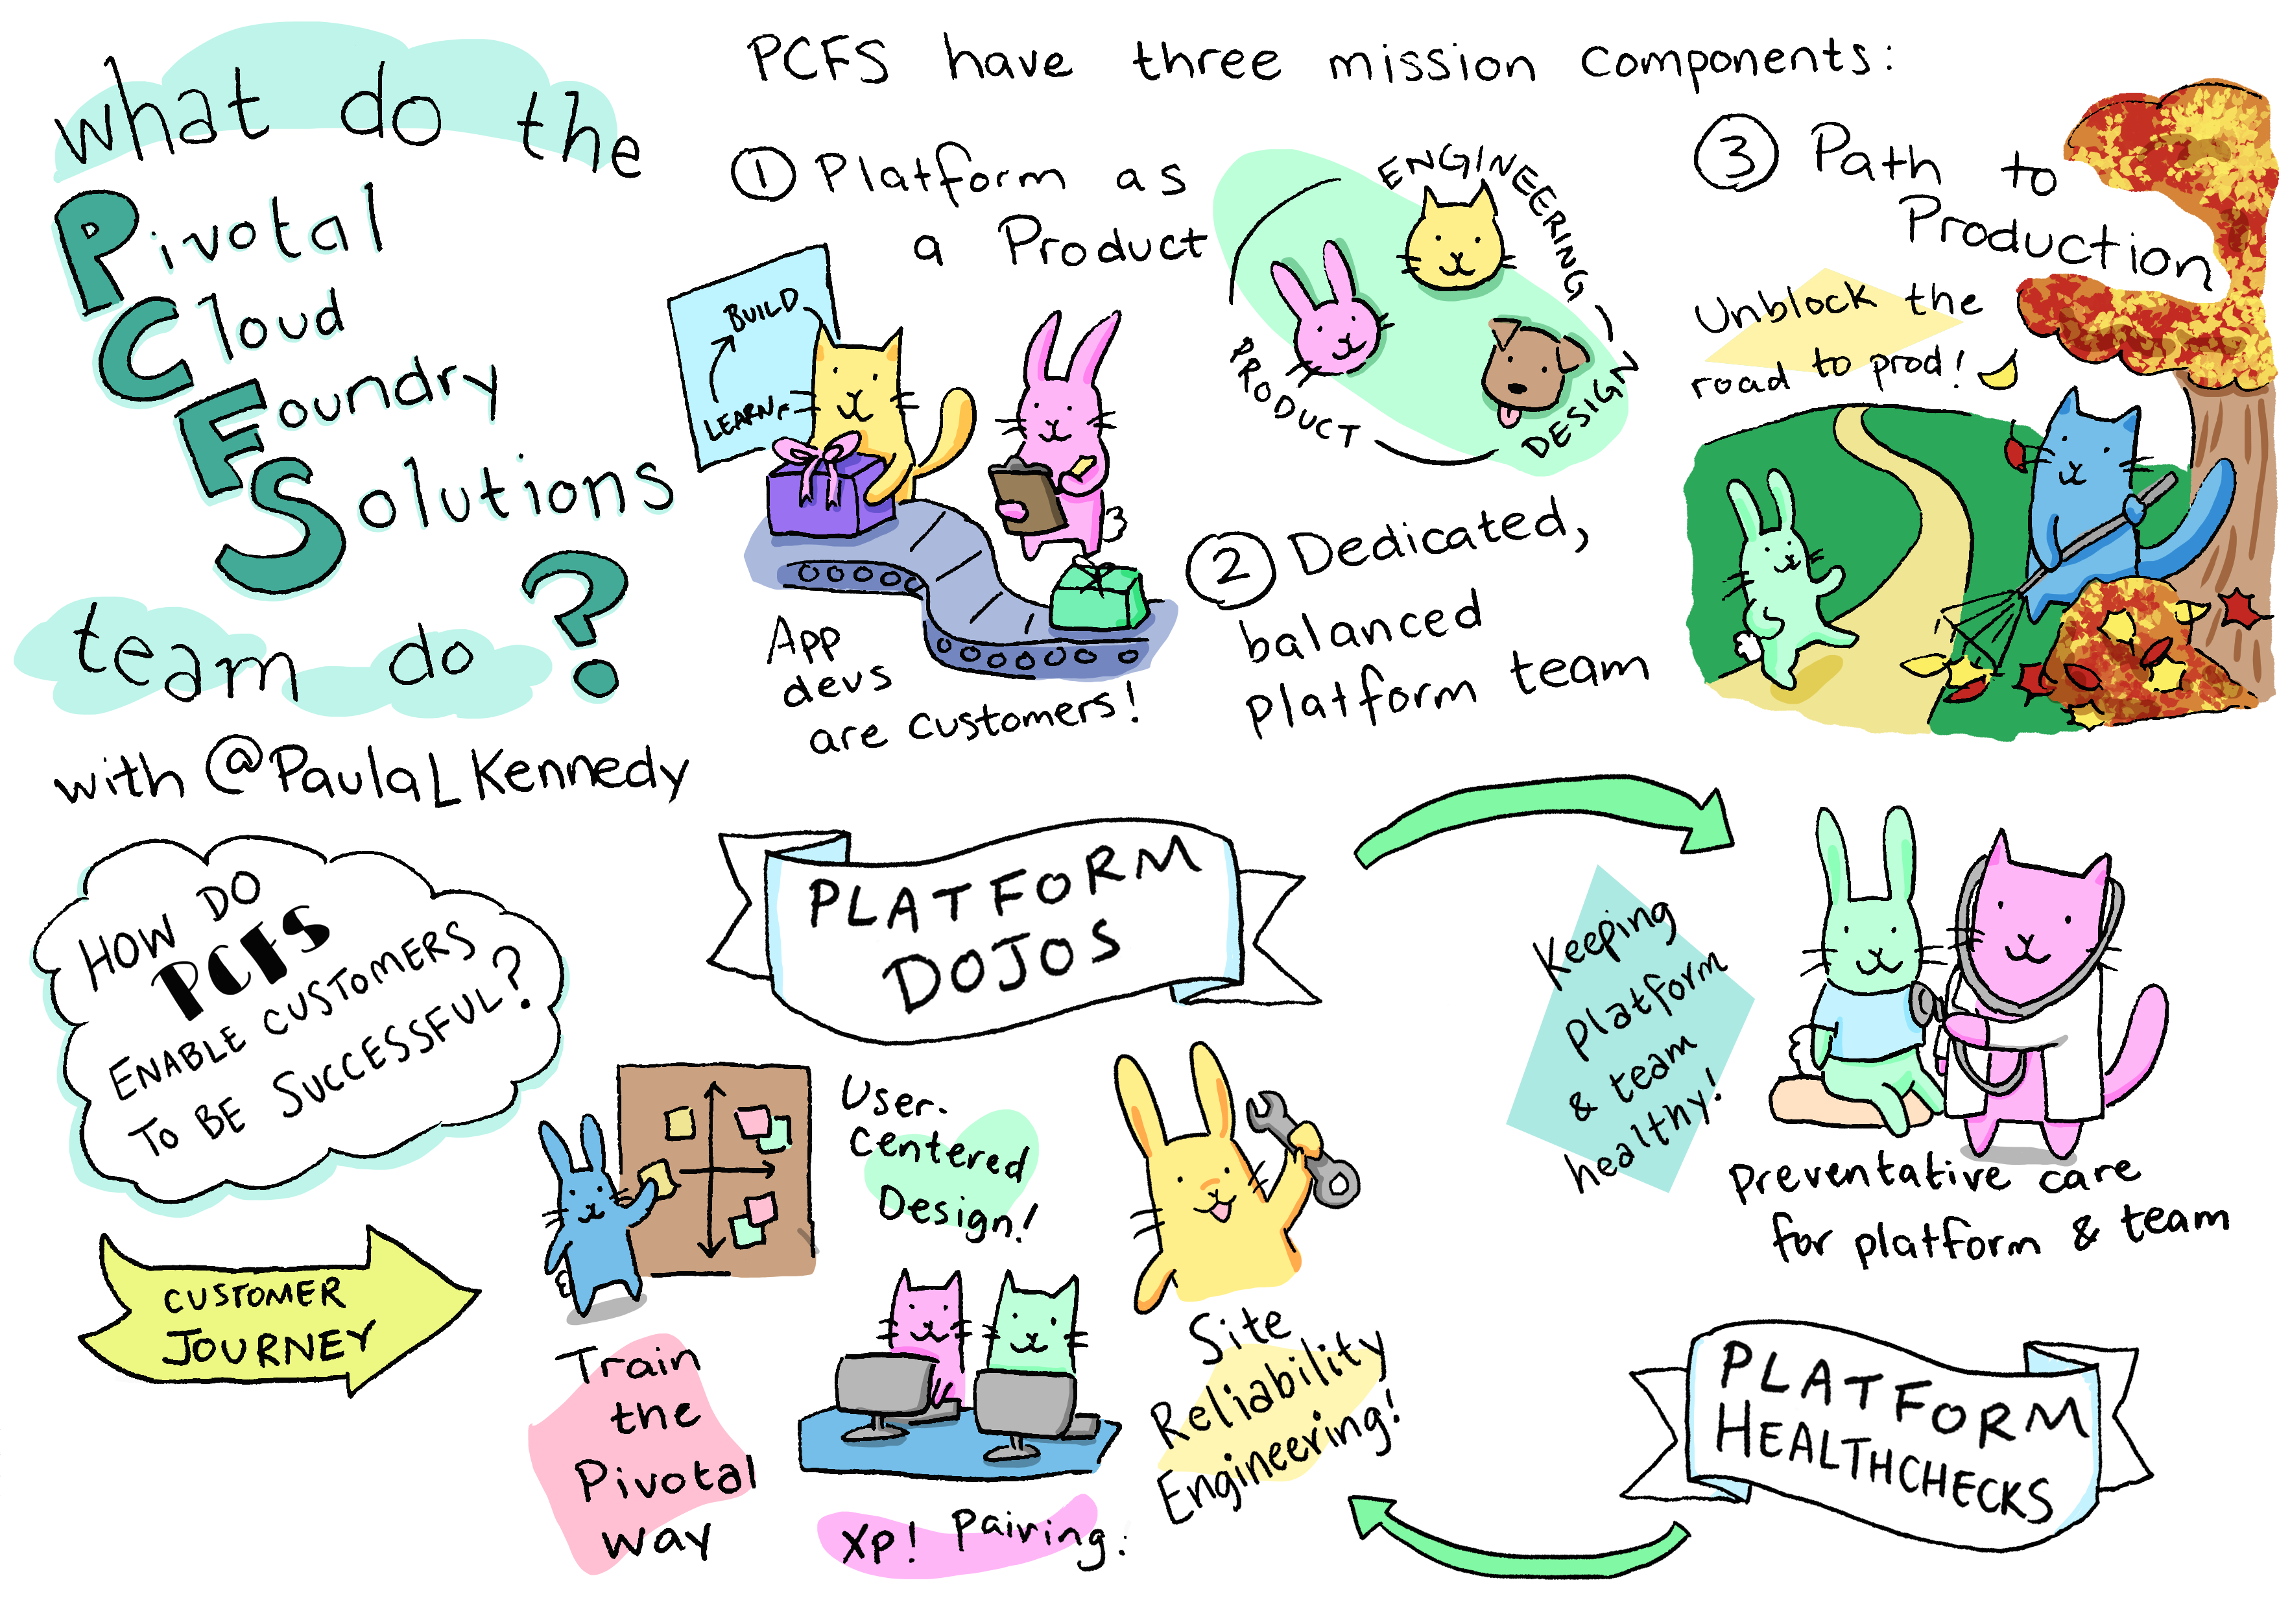 what do the
Pivotal
Cloud
Foundry
Solutions
team do?
with @PaulaLKennedy
PCFS have three mission components:
1 Platform as
a Product
BUILD
LEARN
App
devs
are customers!
ENGINEERING
PRODUCT
DESIGN
2 Dedicated,
balanced
platform team
3 Path to
Production
Unblock the
road to prod!
HOW DO
PCFS
ENABLE CUSTOMERS
TO BE SUCCESSFUL?
CUSTOMER
JOURNEY
PLATFORM
DOJOS
Train
the
Pivotal
way
User-
Centered
Design!
XP! Pairing!
Site
Reliability
Engineering!
Keeping
platform
& team
healthy!
Preventative care
for platform & team
PLATFORM
HEALTHCHECKS